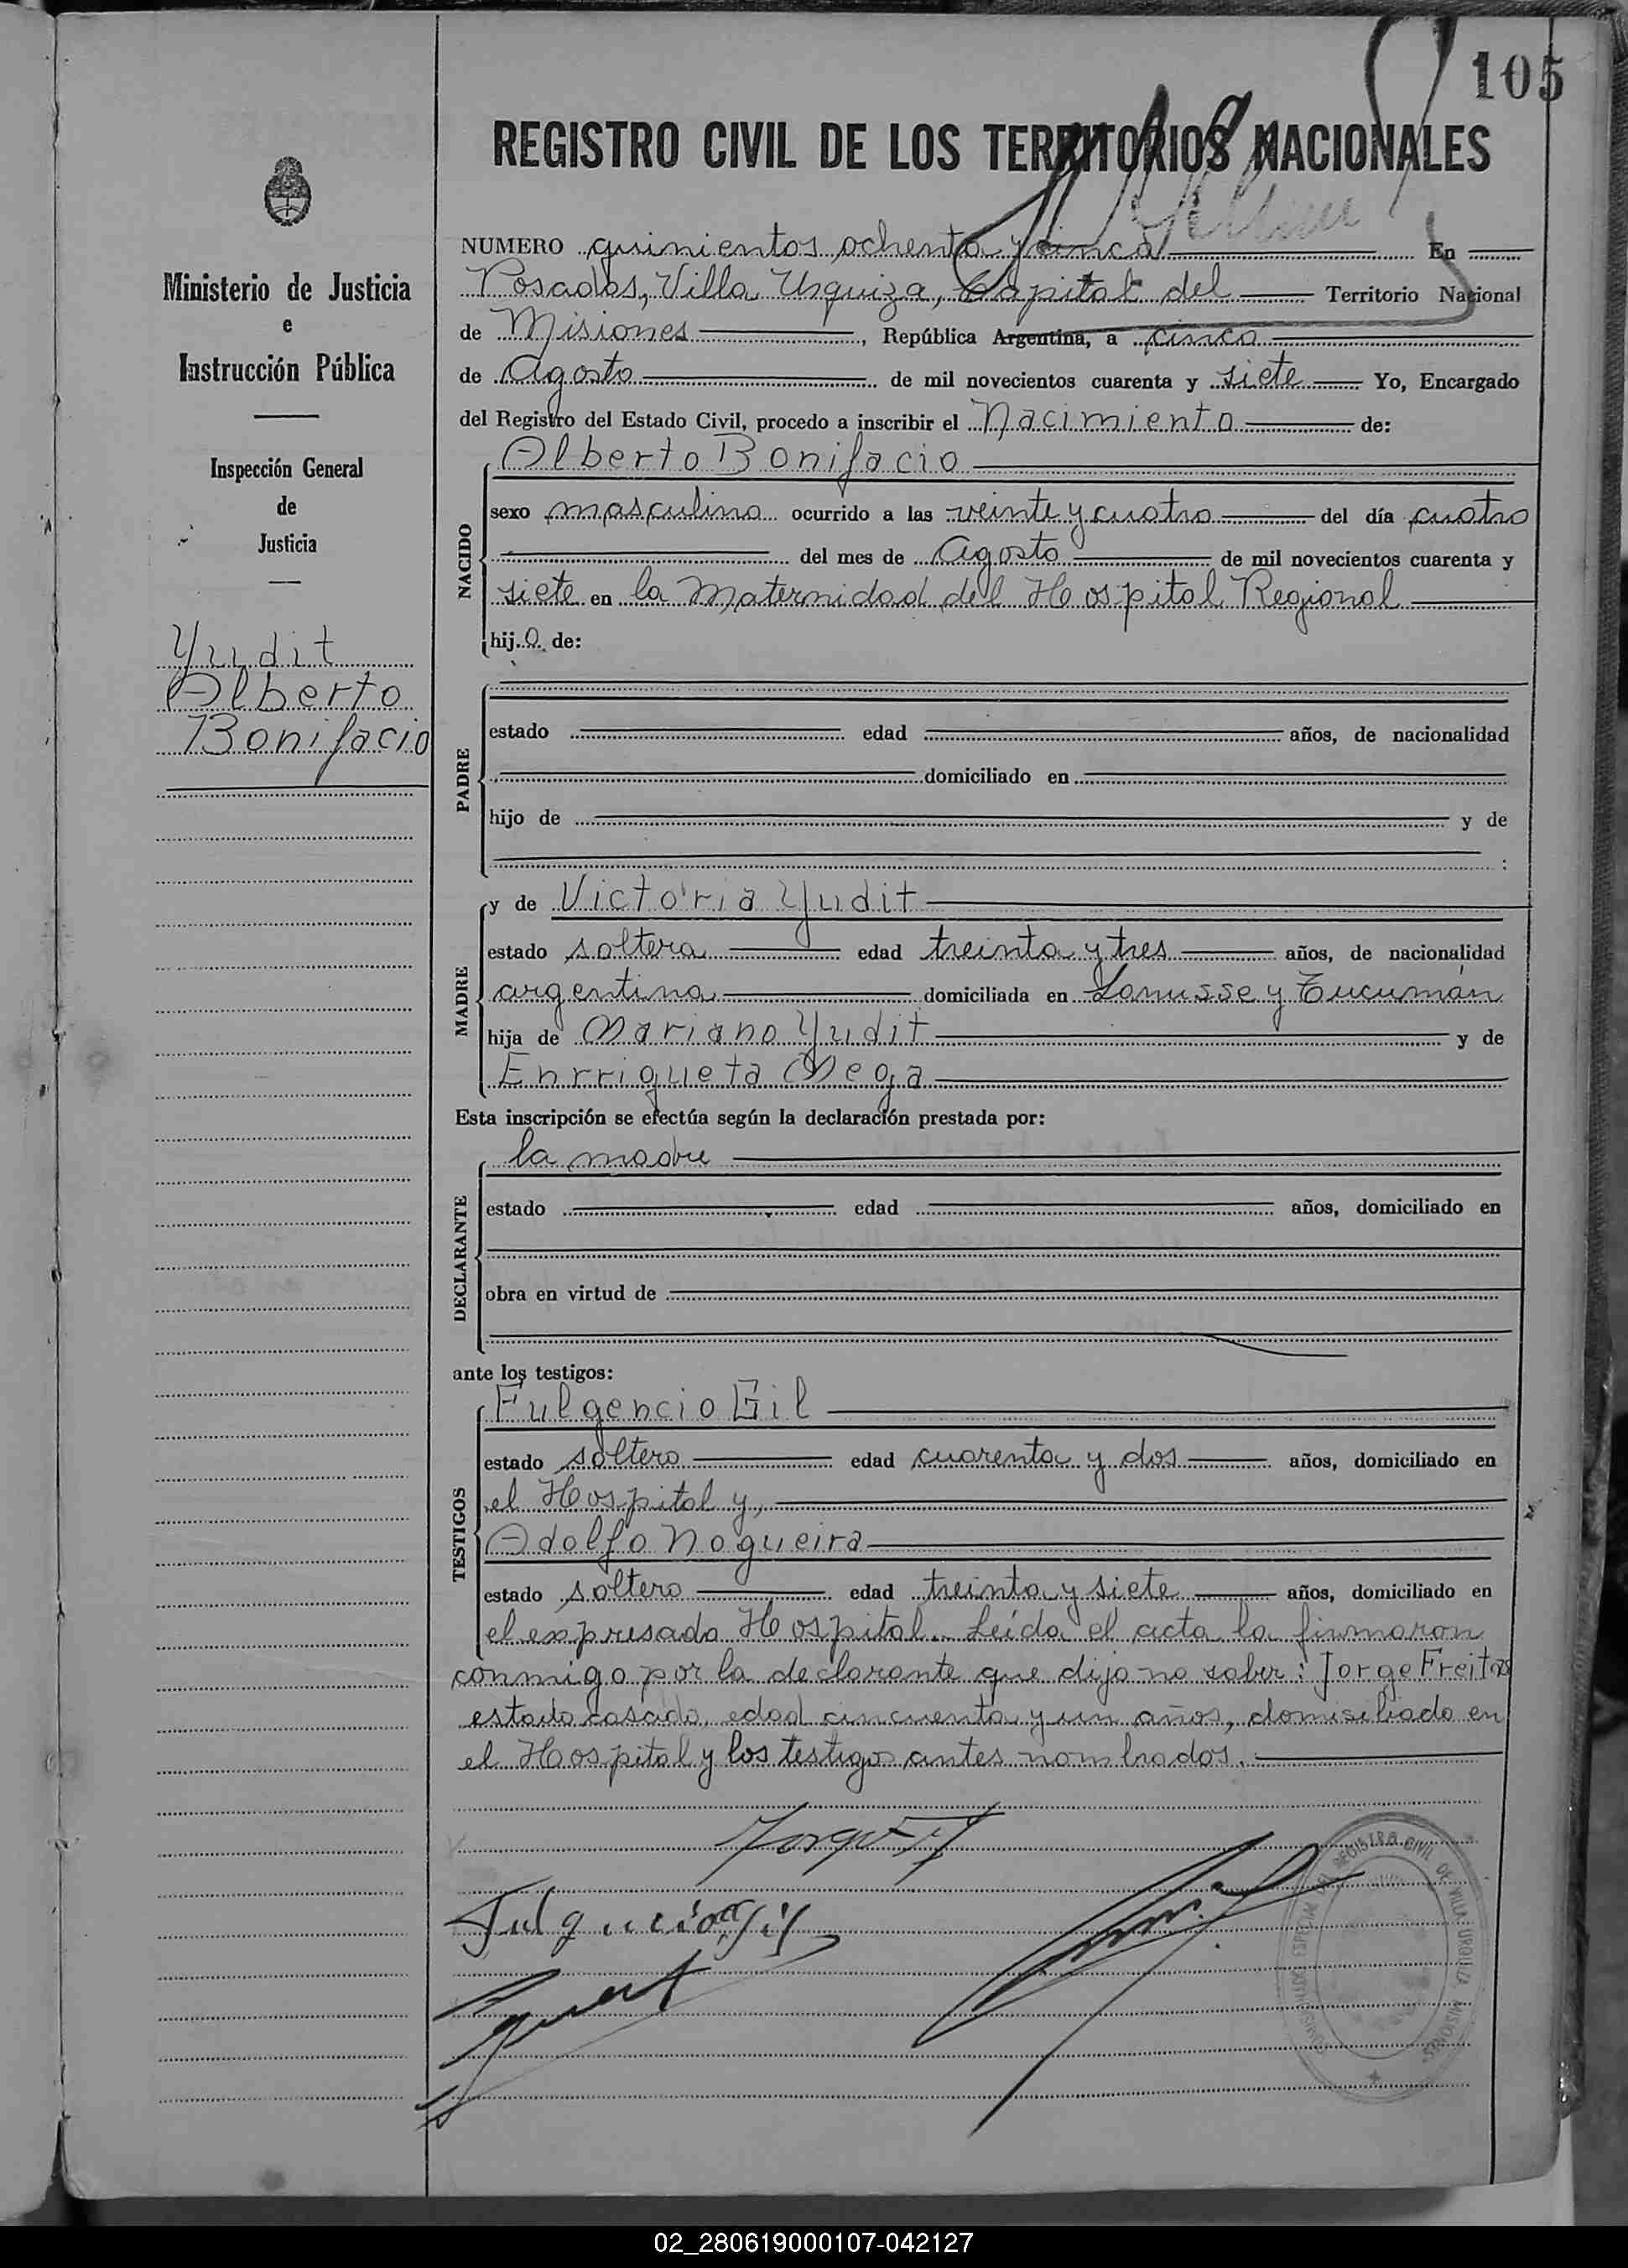 105
REGISTRO CIVIL DE LOS TERRITORIOS NACIONALES
Ministerio de Justicia
e
Instrucción Pública
Inspección General
de
Justicia
Yudit
Alberto
Bonifacio
NUMERO quinientos ochenta y cinco En
Posadas, Villa Urquiza, Capital del Territorio Nacional
de Misiones, República Argentina, a cinco
de Agosto de mil novecientos cuarenta y siete Yo, Encargado
del Registro del Estado Civil, procedo a inscribir el Nacimiento de:
NACIDO
Alberto Bonifacio
sexo masculino ocurrido a las veinte y cuatro del día cuatro
del mes de Agosto de mil novecientos cuarenta y
siete en la Maternidad del Hospital Regional
hijo de:
PADRE
estado edad años, de nacionalidad
domiciliado en
hijo de y de
:
MADRE
y de Victoria Yudit
estado soltera edad treinta y tres años, de nacionalidad
argentina domiciliada en Lanusse y Tucumán
hija de Mariano Yudit y de
Enrriqueta Mega
Esta inscripción se efectúa según la declaración prestada por:
DECLARANTE
la madre
estado edad años, domiciliado en
obra en virtud de
ante los testigos:
TESTIGOS
Fulgencio Gil
estado soltero edad cuarenta y dos años, domiciliado en
el Hospital y,
Adolfo Nogueira
estado soltero edad treinta y siete años, domiciliado en
el expresado Hospital. Leída el acta la firmaron
conmigo por la declarante que dijo no saber: Jorge Freitas
estado casado, edad cincuenta y un años, domisiliado en
el Hospital y los testigos antes nombrados.
Fulgencio Gil
REGISTRO CIVIL DE VILLA URQUIZA MISIONES
02_280619000107-042127